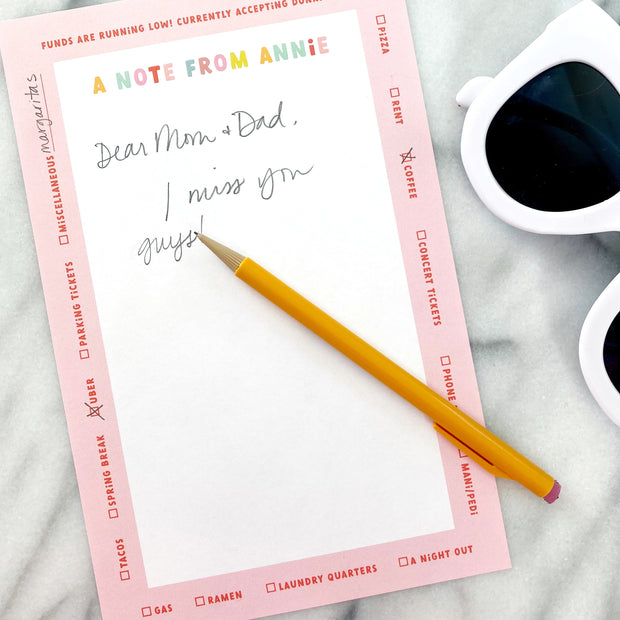 FUNDS ARE RUNNiNG LOW! CURRENTLY ACCEPTiNG
A NOTE FROM ANNiE
Dear Mom & Dad,
I miss you
guys!
PiZZA
RENT
COFFEE
CONCERT TiCKETS
PHONE
MANi/PEDi
A NiGHT OUT
LAUNDRY QUARTERS
RAMEN
GAS
TACOS
SPRiNG BREAK
UBER
PARKiNG TiCKETS
MiSCELLANEOUS margaritas